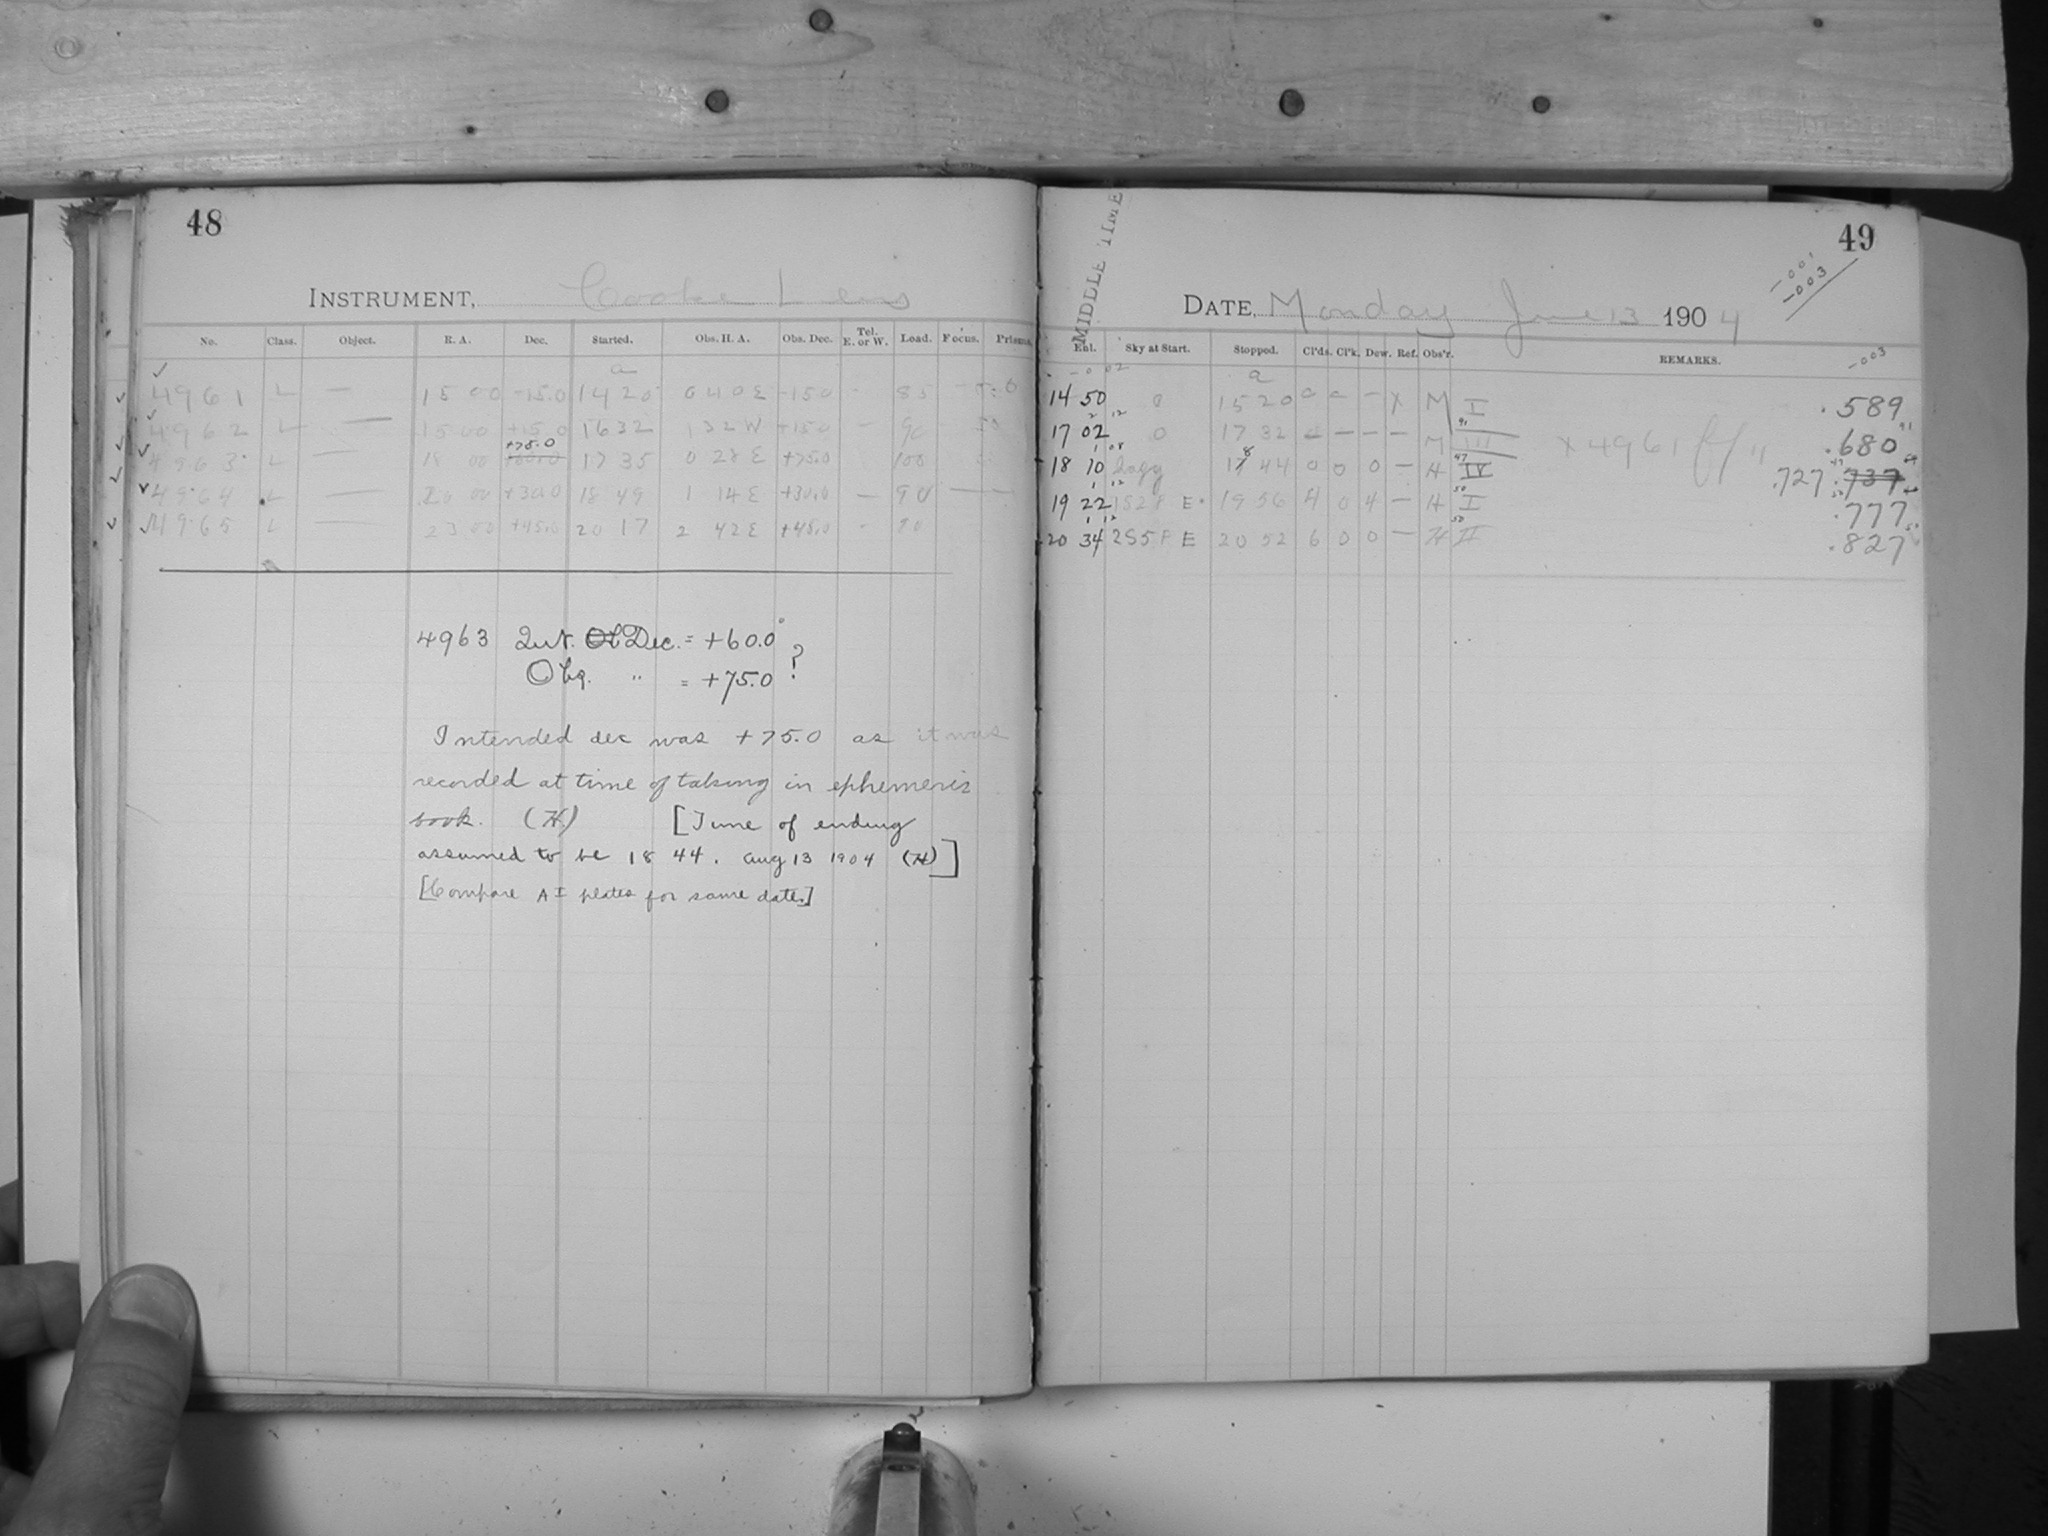 48
INSTRUMENT, Cooke Lens
No. Class. Object. R. A. Dec. Started. Obs. H. A. Obs. Dec. Tel. E. or W. Load. Focus. Prisms.
4961 L — 15 00 -15.0 14 20 0 40 E -15.0 - 85
4962 L — 15 00 +15.0 16 32 1 32 W +15.0 - 90
+75.0
4963 L — 18 00 +60.0 17 35 0 28 E +75.0 100
4964 L — 20 00 +30.0 18 49 1 14 E +30.0 — 90 —
4965 L — 23 00 +45.0 20 17 2 42 E +45.0 - 90
4963 Int. Ob Dec. = +60.0°
Obs. " = +75.0 ?
Intended dec was +75.0 as it was
recorded at time of taking in ephemeris
book. (H) [Time of ending
assumed to be 18 44. Aug 13 1904 (H)]
[Compare AI plates for same date.]
49
-001
-003
MIDDLE TIME
DATE, Monday June 13 1904
Ehl. Sky at Start. Stopped. Cl'ds. Cl'k. Dew. Ref. Obs'r. REMARKS.
-003
14 50 0 15 20 0 - X M I .589
17 02 0 17 32 — — — M III X 4961 .680
18 10 hazy 18 44 0 0 0 — H IV .727 .737
19 22 1S2P E 19 56 4 0 4 — H I .777
20 34 2S5P E 20 52 6 0 0 — H II .827